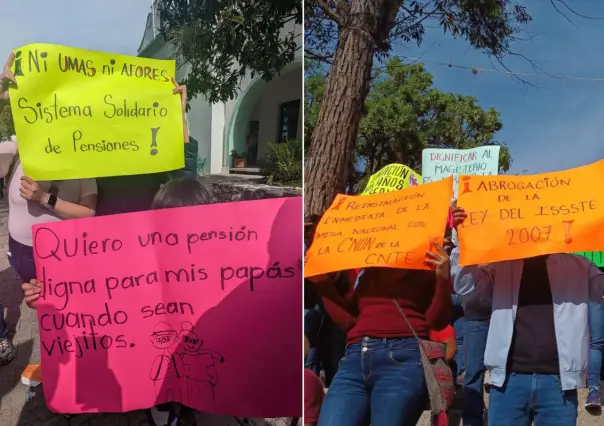 ¡Ni UMAS ni AFORES
Sistema Solidario
de Pensiones !
Quiero una pensión
digna para mis papás
cuando sean
viejitos.
DIGNIFICAR
AL MAGISTERIO
¡ REINSTALACIÓN
INMEDIATA DE LA
MESA NACIONAL CON
LA CNUN DE LA
CNTE
¡ ABROGACIÓN
DE LA
LEY DEL ISSSTE
2007 !